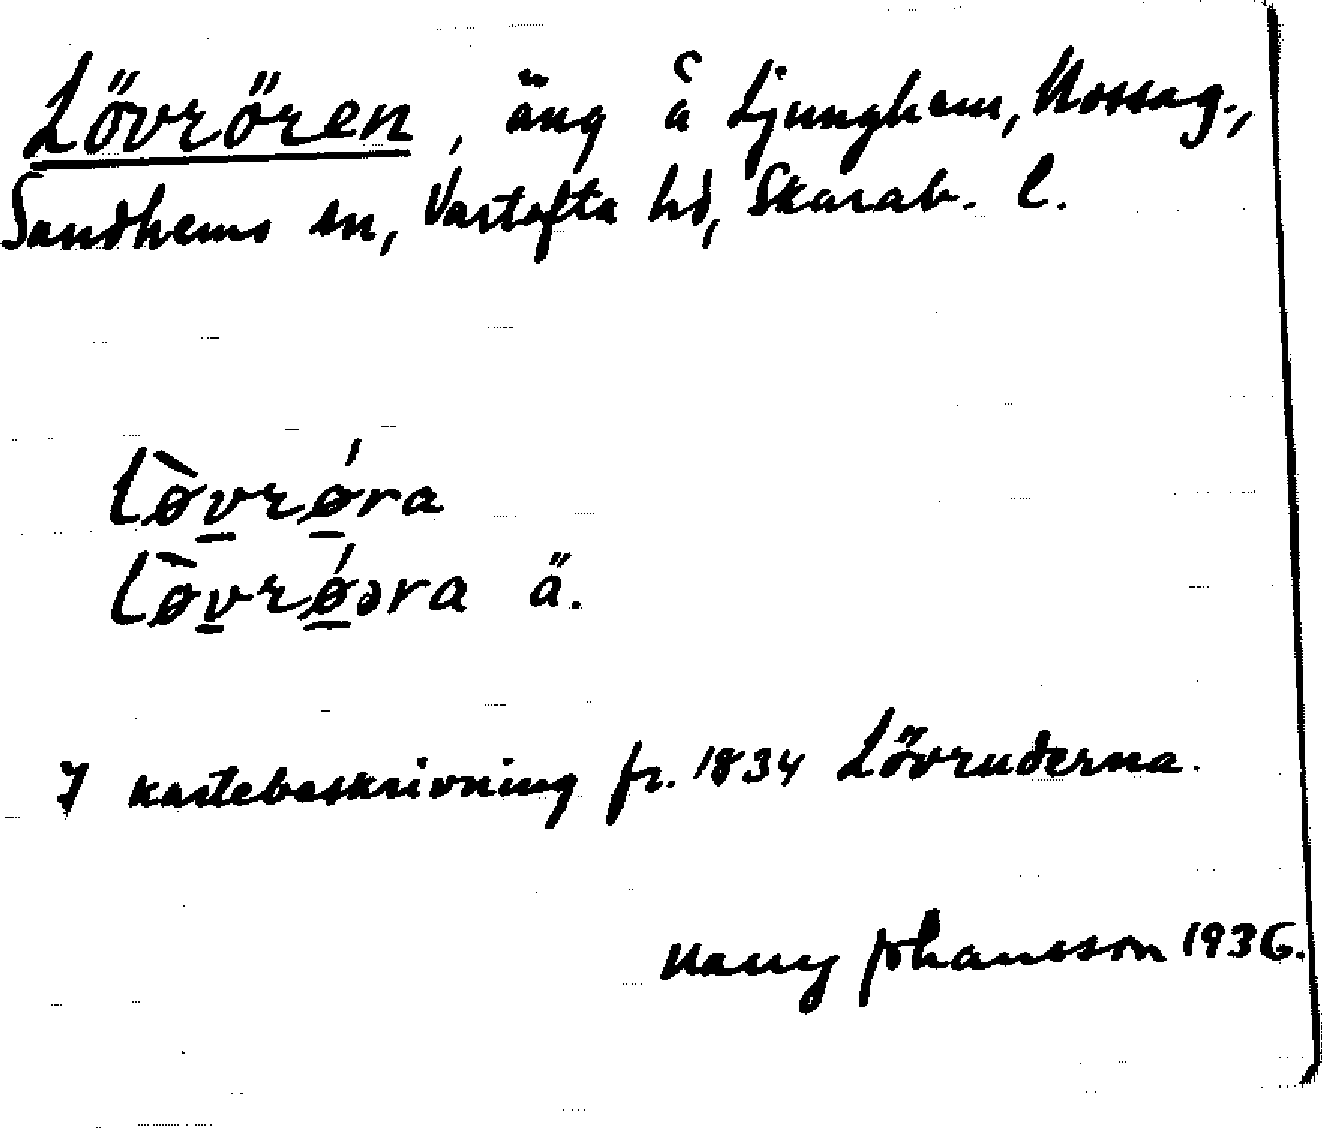 Lövrören, äng å Ljunghem, Mossag.,
Sandhems sn, Vartofta hd, Skarab. l.
Lø̀vrǿra
Lø̀vrǿəra ä.
I kartebeskrivning fr. 1834 Lövruderna.
Harry Johansson 1936.